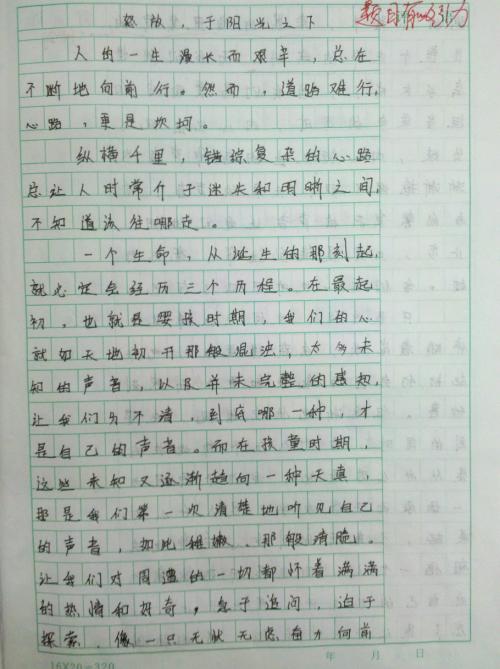 怒放，于阳光之下
题目有吸引力
人的一生漫长而艰辛，总在
不断地向前行。然而，道路难行，
心路，更是坎坷。
纵横千里，错综复杂的心路
总让人时常介于迷失和明晰之间，
不知道该往哪走。
一个生命，从诞生的那刻起，
就必定会经历三个历程。在最起
初，也就是婴孩时期，我们的心
就如天地初开那般混沌，太多未
知的声音，以及并未完整的感知，
让我们分不清，到底哪一种，才
是自己的声音。而在孩童时期，
这些未知又逐渐趋向一种天真，
那是我们第一次清楚地听见自己
的声音，如此稚嫩，那般清脆。
让我们对周遭的一切都怀着满满
的热情和好奇，急于追问，迫于
探索，像一只无忧无虑奋力向前
16×20=320
年 月 日